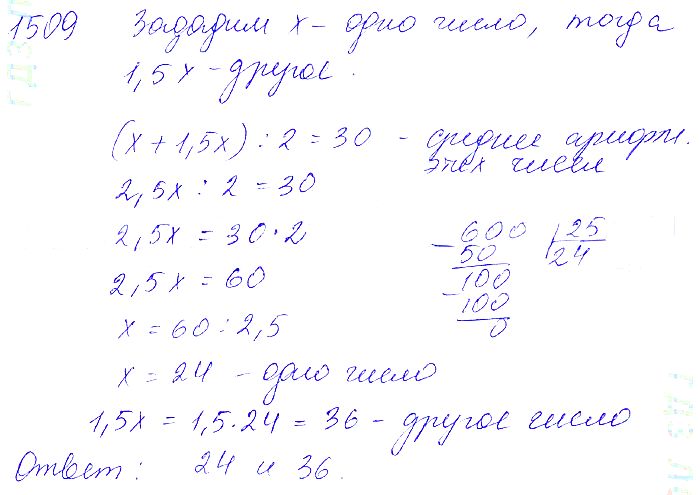 1509 Зададим x - одно число, тогда
1,5x - другое.
(x + 1,5x) : 2 = 30 - среднее арифм.
этих чисел
2,5x : 2 = 30
2,5x = 30 · 2
2,5x = 60
x = 60 : 2,5
600 25
- 50 24
100
- 100
0
x = 24 - одно число
1,5x = 1,5 · 24 = 36 - другое число
Ответ: 24 и 36.